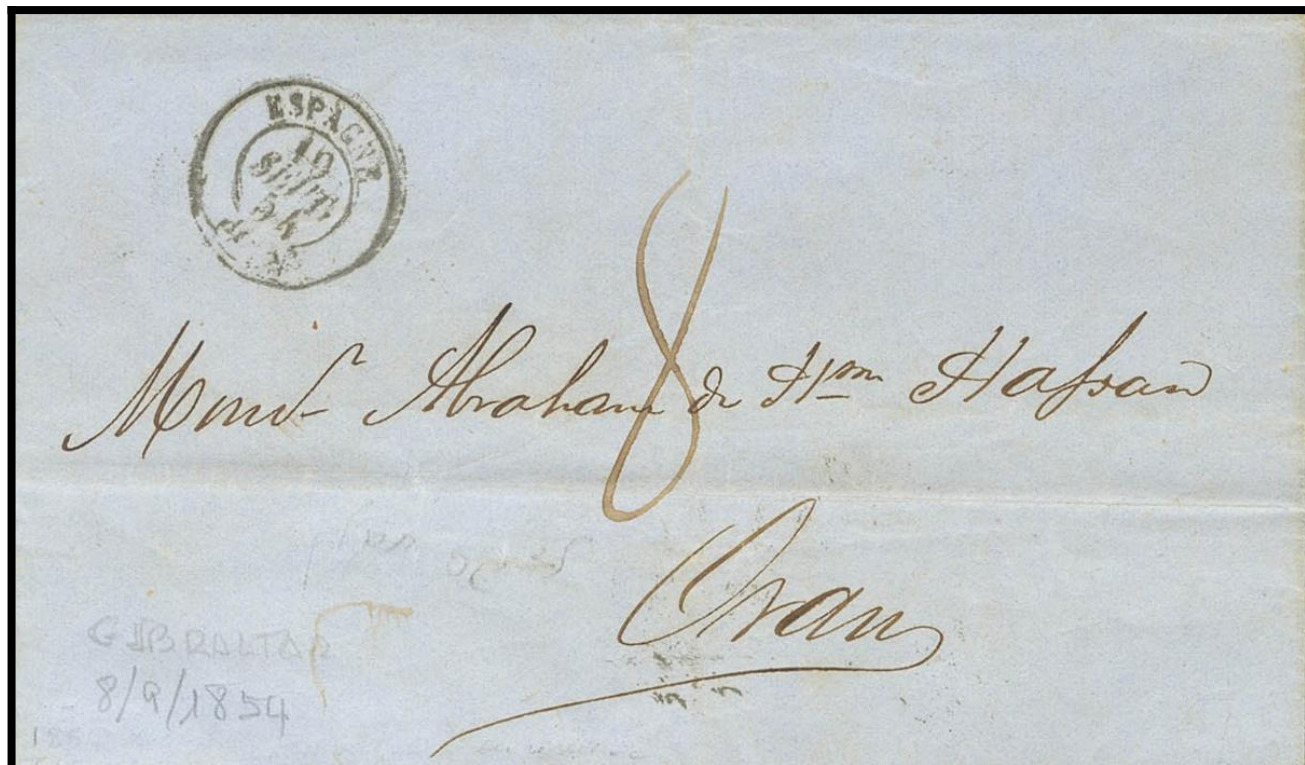 ESPAGNE
10
SEPT.
54
8
Monsr Abraham de Hm Hassan
Oran
GIBRALTAR
8/9/1854